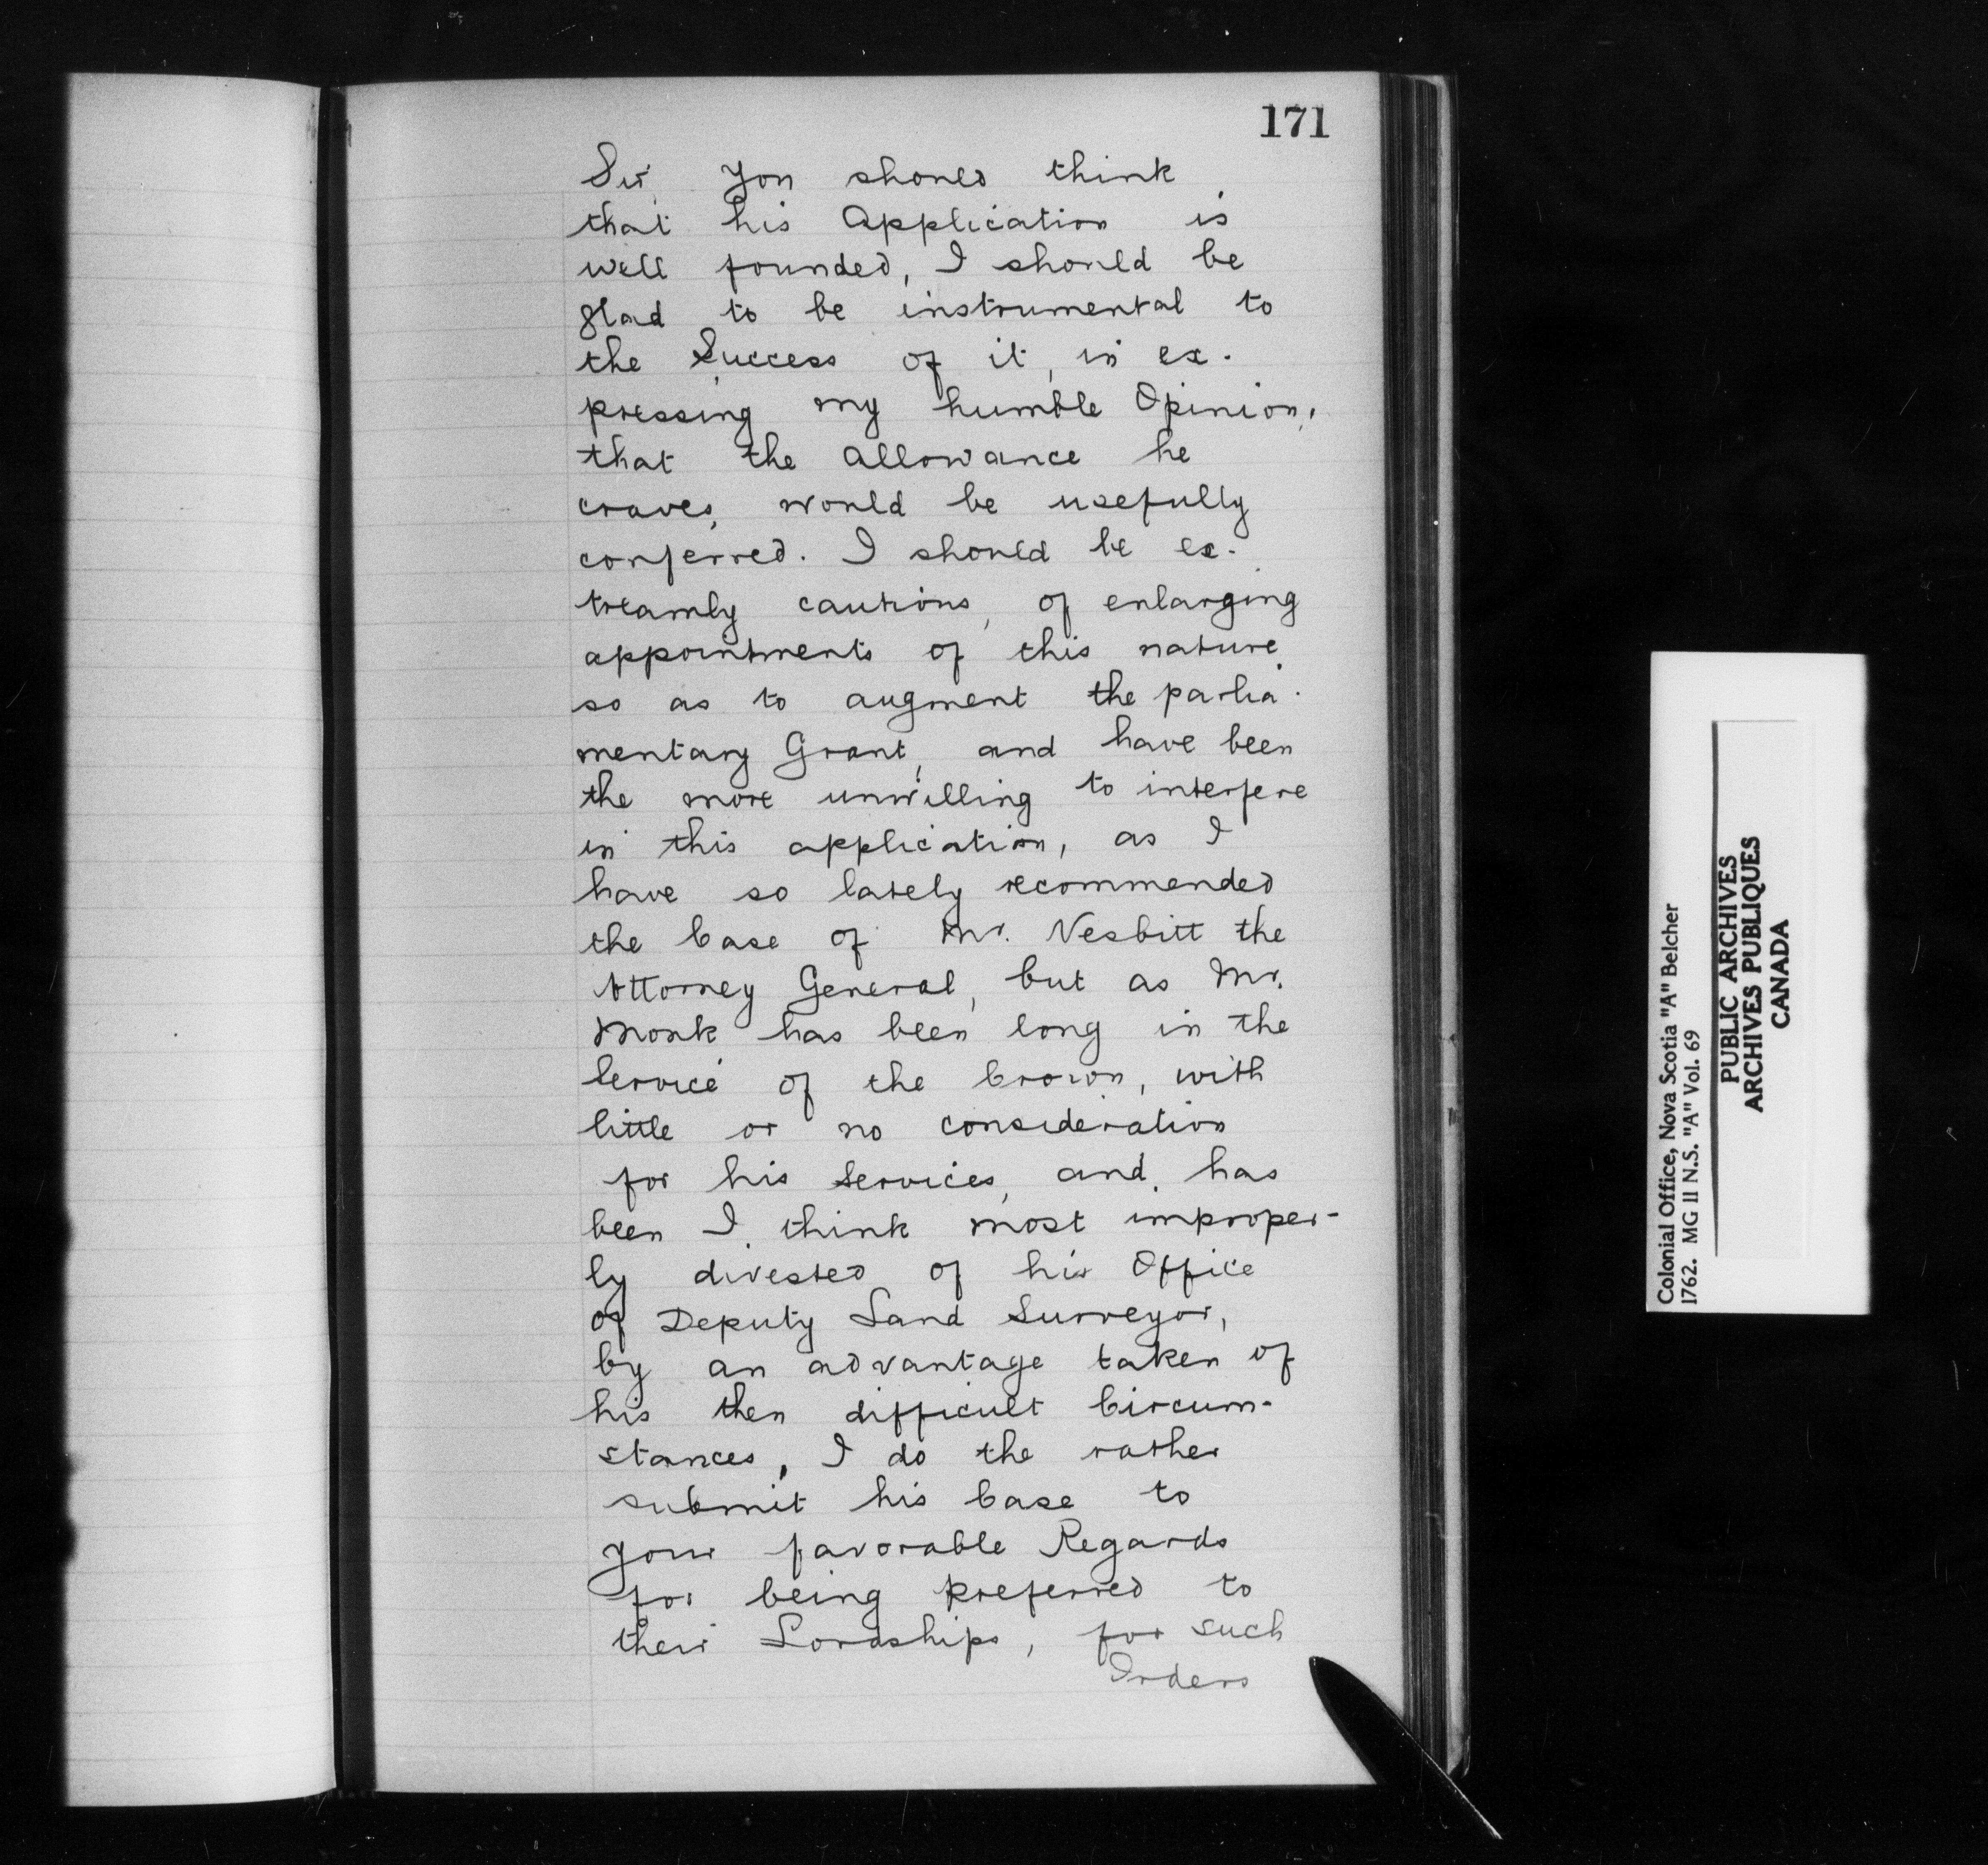 171
Sir, you should think
that his Application is
well founded, I should be
glad to be instrumental to
the Success of it, in ex-
pressing my humble Opinion,
that the Allowance he
craves, would be usefully
conferred. I should be ex-
treamly cautious, of enlarging
appointments of this nature
so as to augment the parlia-
mentary Grant, and have been
the more unwilling to interfere
in this application, as I
have so lately recommended
the Case of Mr. Nesbitt the
Attorney General, but as Mr.
Monk has been long in the
Service of the Crown, with
little or no consideration
for his Services, and has
been I think most improper-
ly divested of his Office
of Deputy Land Surveyor,
by an advantage taken of
his then difficult Circum-
stances, I do the rather
submit his Case to
your favorable Regards
for being preferred to
their Lordships, for such
Orders
Colonial Office, Nova Scotia "A" Belcher
1762. MG 11 N.S. "A" Vol. 69
PUBLIC ARCHIVES
ARCHIVES PUBLIQUES
CANADA